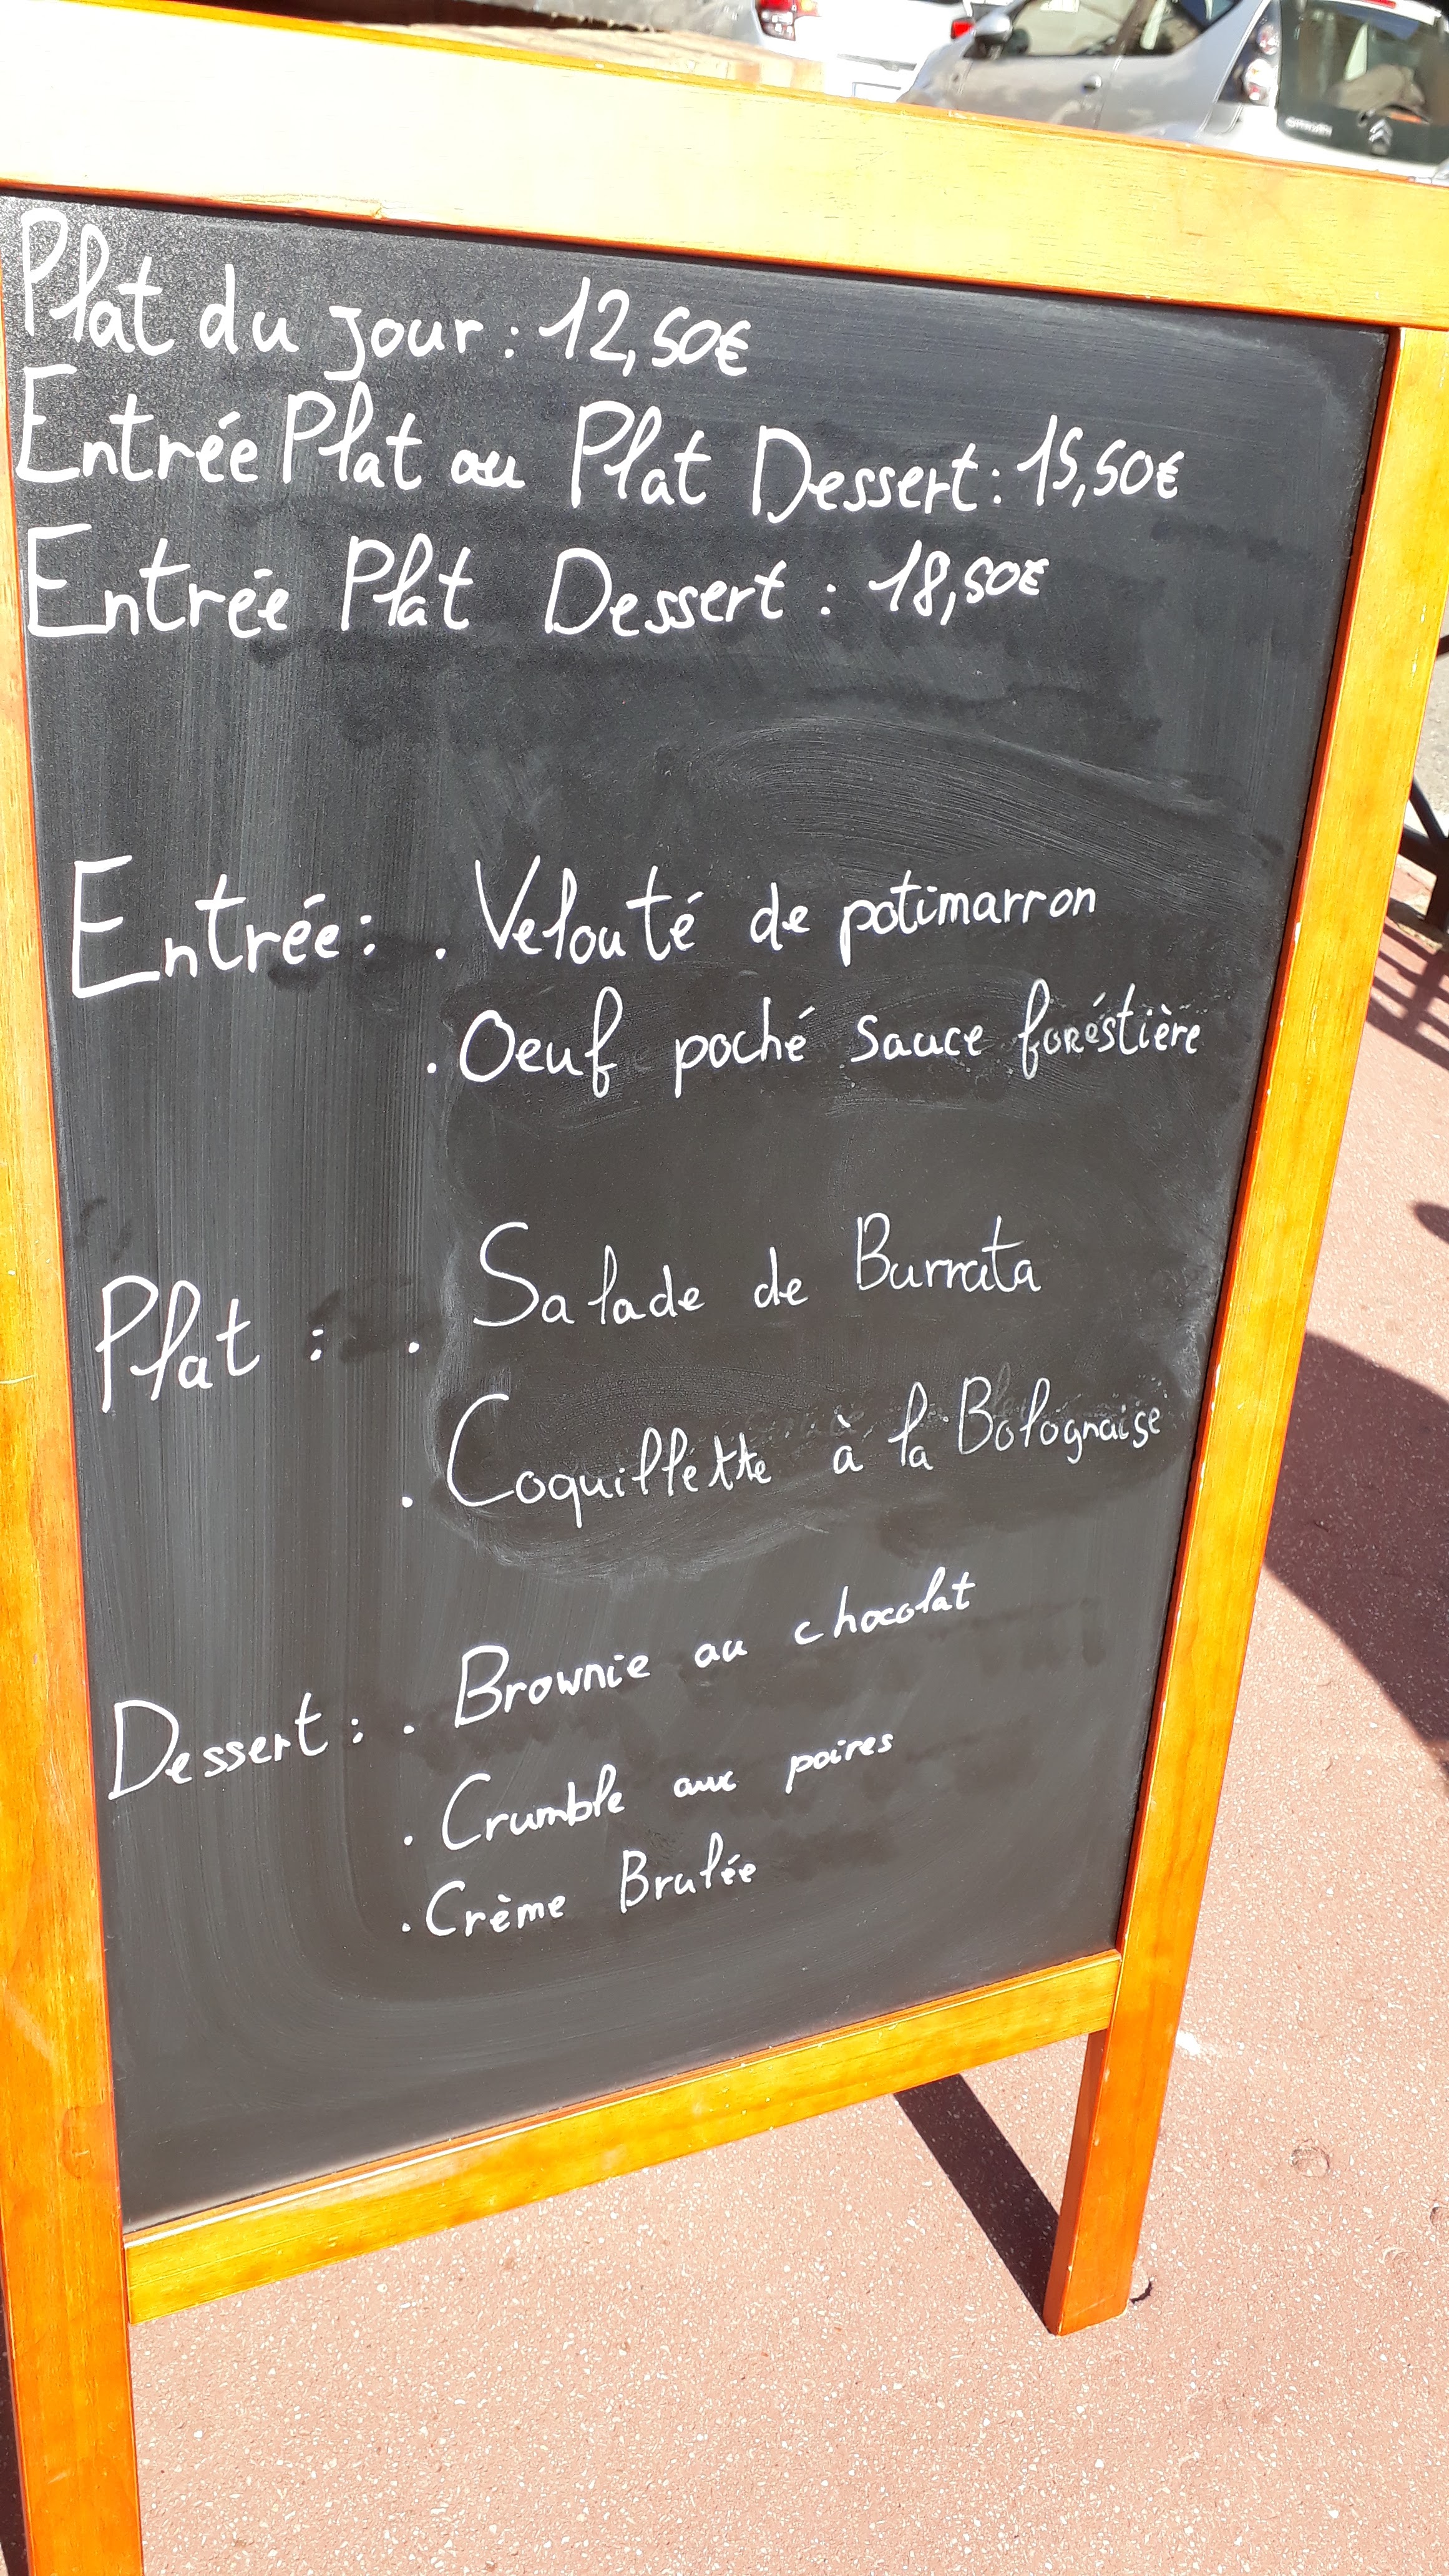 CITROËN
Plat du jour : 12,50€
Entrée Plat ou Plat Dessert : 15,50€
Entrée Plat Dessert : 18,50€
Entrée : . Velouté de potimarron
. Oeuf poché sauce foréstière
Plat : . Salade de Burrata
. Coquillette à la Bolognaise
Dessert : . Brownie au chocolat
. Crumble aux poires
. Crème Brulée